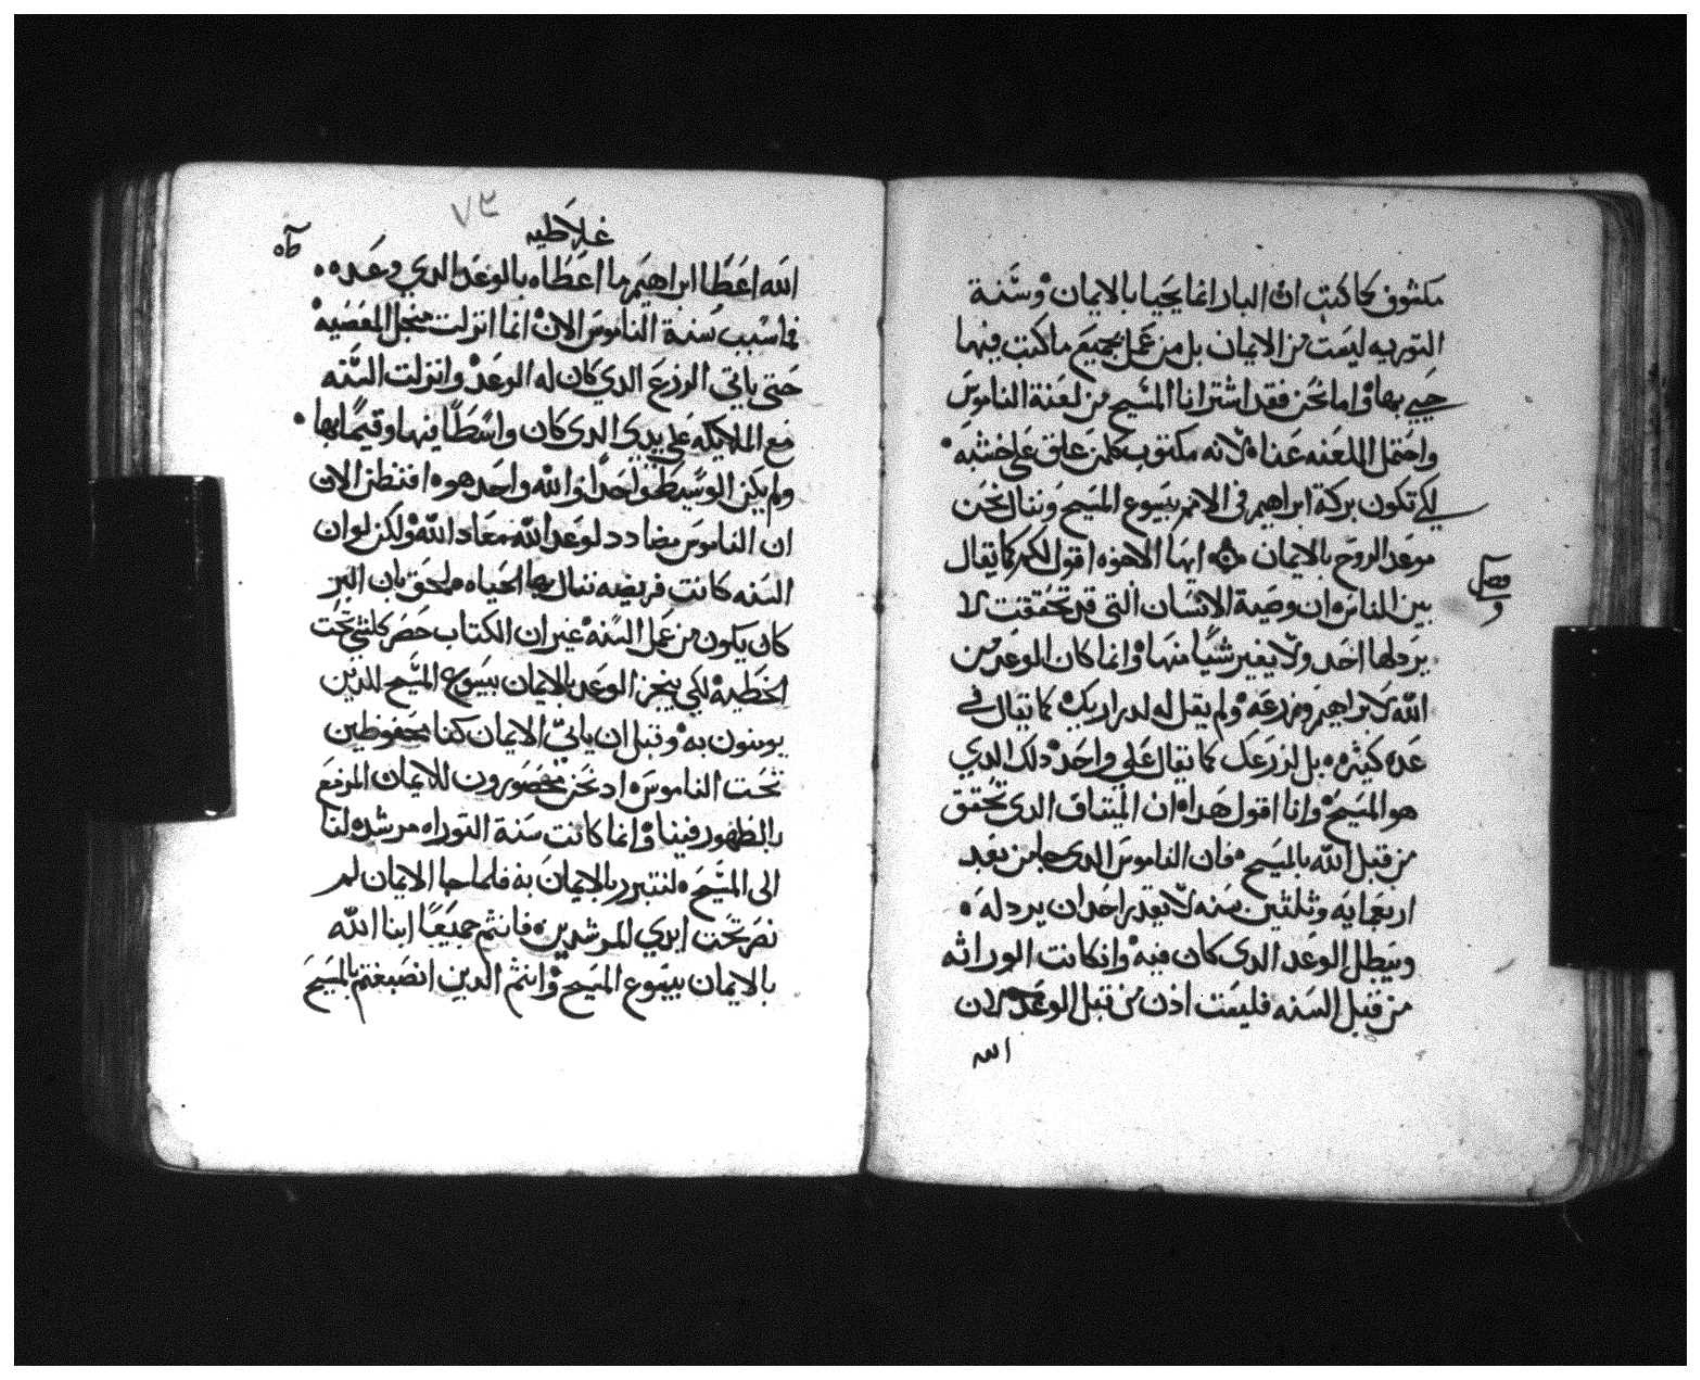 مكشوف كما كتب ان البار انما يحيا بالايمان وسنة
التوريه ليست من الايمان بل من عمل بجميع ما كتب فيها
حيي بها واما نحن فقد اشترانا المسيح من لعنة الناموس
واحتمل اللعنه عنا لانه مكتوب كلمن علق على خشبه
لكي تكون بركة ابراهيم في الامم بيسوع المسيح وننال نحن
موعد الروح بالايمان ايها الاخوه اقول لكم كما يقال
فصل
و
بين الناس ان وصية الانسان التي قد تحققت لا
يردلها احد ولا يغير شيا منها وانما كان الوعد من
الله لابراهيم وزرعه ولم يقل له لدراريك كما يقال في
عده كثيره بل لزرعك كما يقال على واحد دلك الدي
هو المسيح وانا اقول هدا ان الميتاق الدي تحقق
من قبل الله بالمسيح فان الناموس الدي جا من بعد
اربعمايه وثلثين سنه لا يقدر احد ان يردله
ويبطل الوعد الدي كان فيه وان كانت الوراثه
من قبل السنه فليست اذن من قبل الوعد لان
الله
٧٣
غلاطيه
الله اعطا ابراهيم ما اعطاه بالوعد الدي وعده
فما سبب سنة الناموس الان انما انزلت منجل المعصيه
حتى ياتي الزرع الدي كان له الوعد وانزلت السنه
مع الملايكه على يدي الدي كان واسطا فيها وقيما بها
ولم يكن الوسيط لواحدا والله واحد هو افتظن الان
ان الناموس مضادد لوعد الله معاد الله ولكن لو ان
السنه كانت فريضه ننال بها الحياه لحق بان البر
كان يكون من عمل السنه غير ان الكتاب حصر كلشي تحت
الخطيه لكي ينجز الوعد بالايمان بيسوع المسيح للدين
يومنون به وقبل ان ياتي الايمان كنا محفوظين
تحت الناموس اد نحن محصورون للايمان المزمع
بالظهور فينا وانما كانت سنة التوراه مرشده لنا
الى المسيح لنتبرر بالايمان به فلما جا الايمان لم
نصر تحت ايدي المرشدين فانتم جميعا ابنا الله
بالايمان بيسوع المسيح وانتم الدين انصبغتم بالمسيح